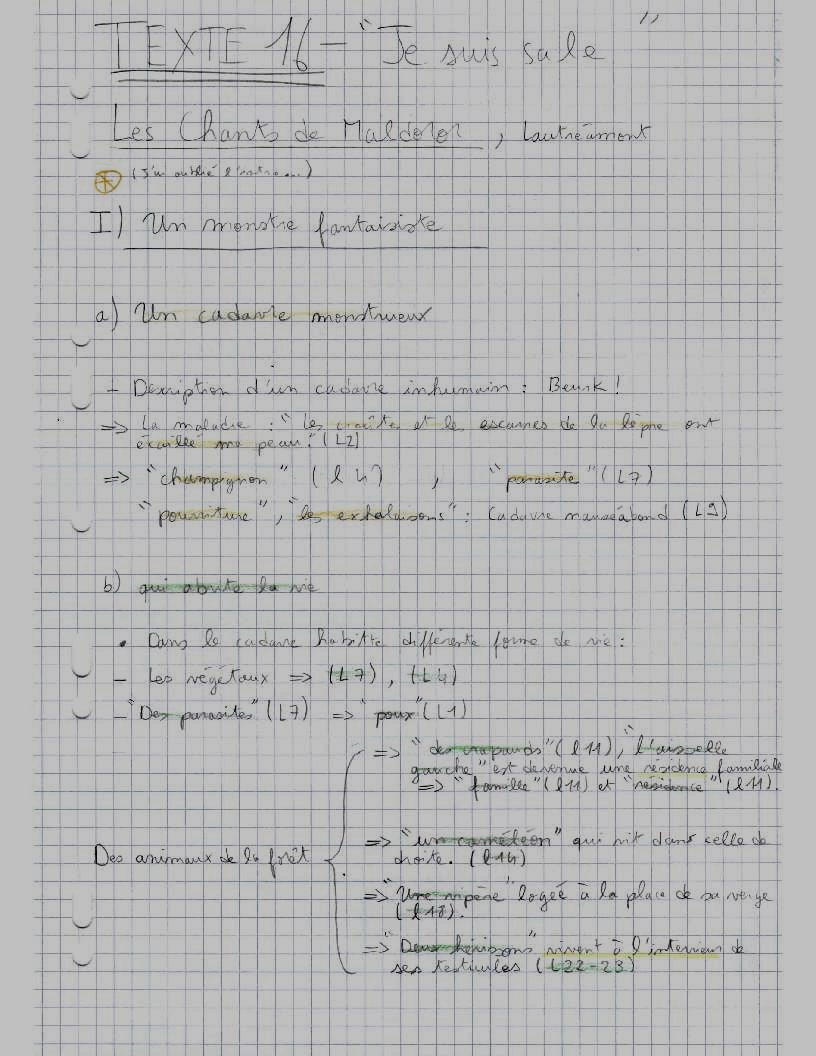 TEXTE 16 - "Je suis sale"
Les Chants de Maldoror, Lautréamont
(J'ai oublié l'intro...)
I) Un monstre fantaisiste
a) Un cadavre monstrueux
- Description d'un cadavre inhumain : Beurk !
=> La maladie : "Les croûtes et les escarres de la lèpre ont
écaillé ma peau." (L2)
=> "champignon" (l 4) , "parasite" (L7)
"pourriture", "les exhalaisons" : Cadavre nauséabond (L9)
b) qui abrite la vie
• Dans le cadavre habitte différente forme de vie :
- Les végétaux => (L7), (L4)
- "Des parasites" (L7) => "poux" (L1)
=> "des crapauds" (l11), "l'aisselle
gauche" est devenue une résidence familiale
=> "famille" (l11) et "résidence" (l11).
Des animaux de la forêt
=> "un caméléon" qui vit dans celle de
droite. (l14)
=> "Une vipère" logée à la place de sa verge
(l18).
=> "Deux hérissons" vivent à l'interieur de
ses testicules (L22-23)